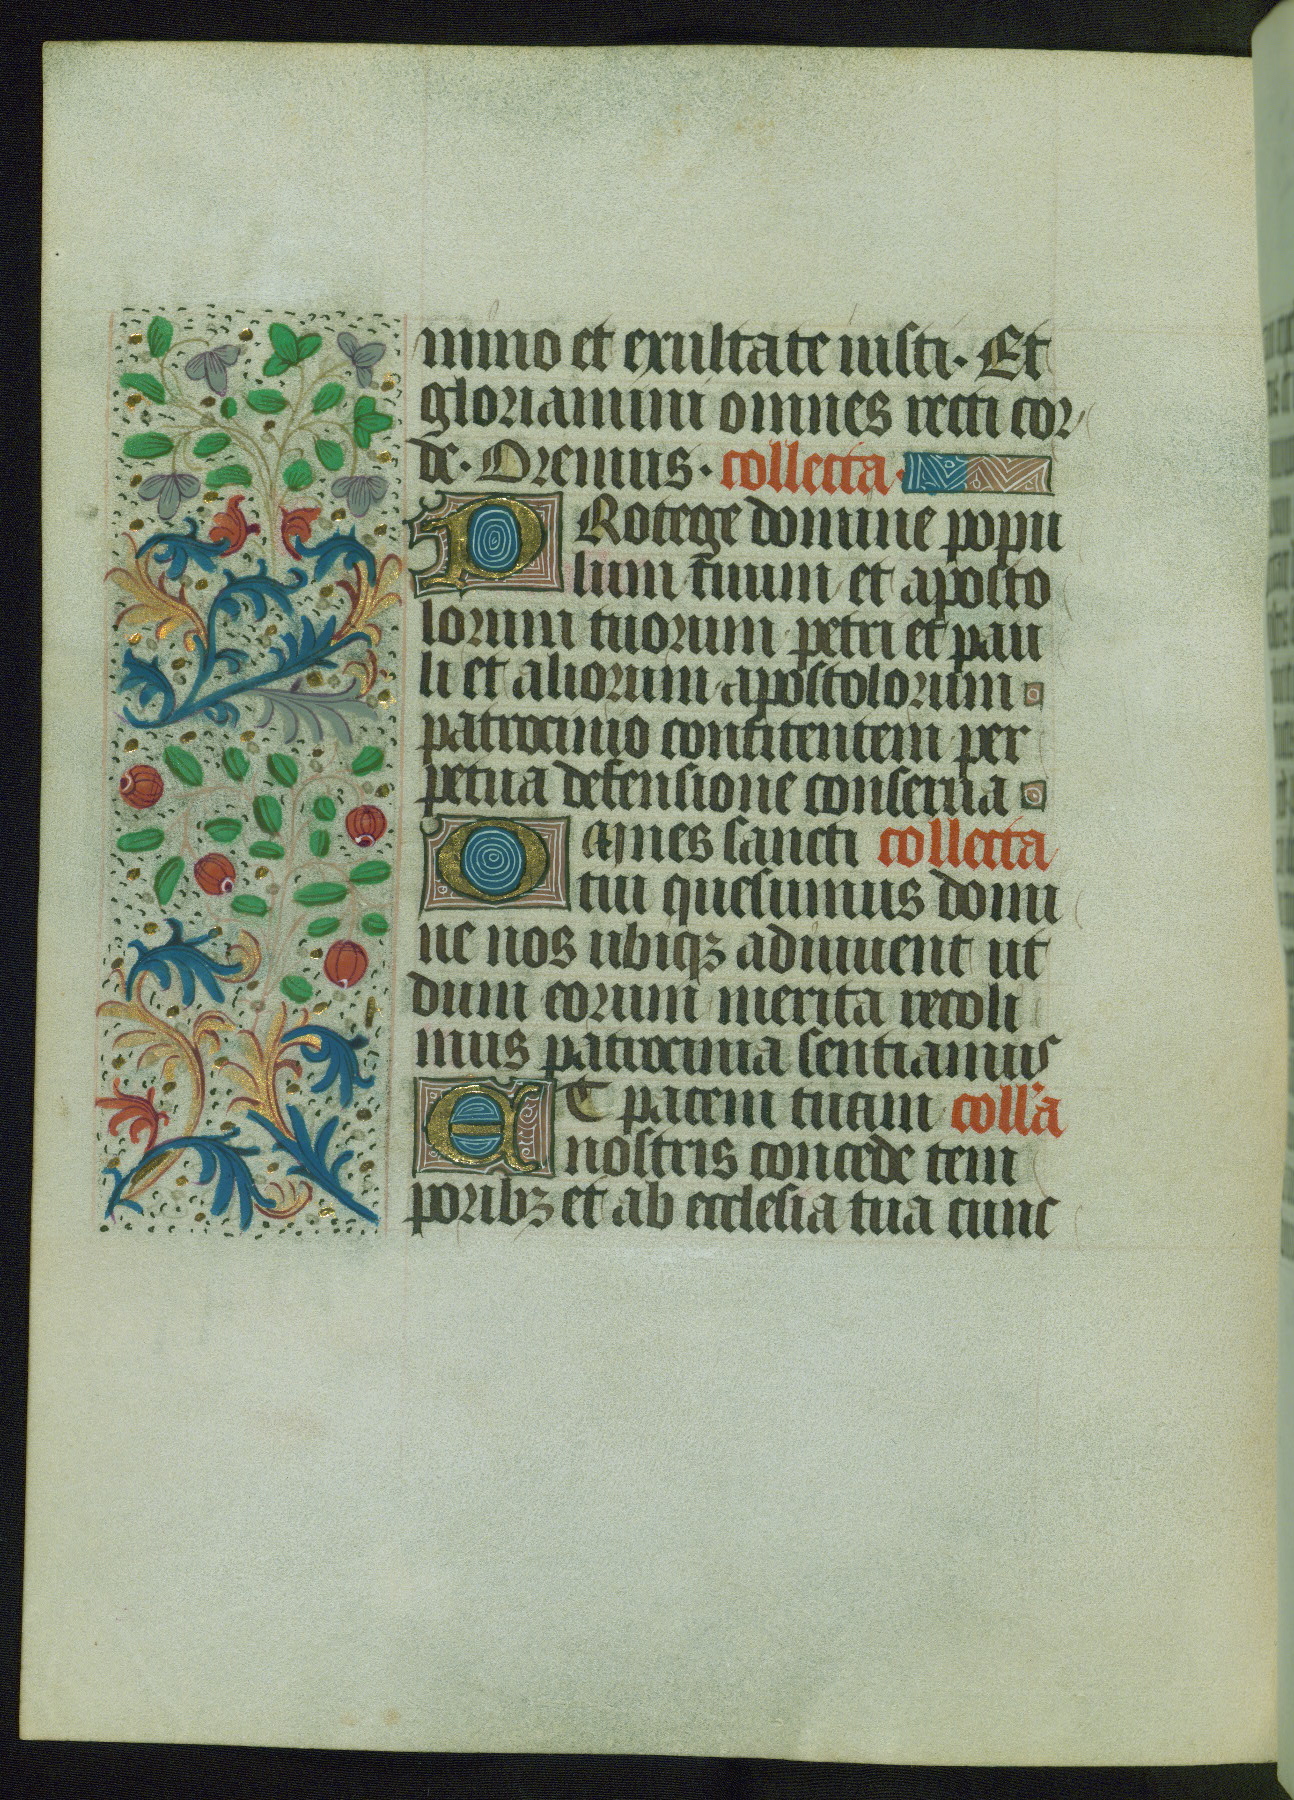 mino et exultate iusti. Et
gloriamini omnes recti cor
de. Oremus. collecta.
PRotege domine popu
lum tuum et aposto
lorum tuorum petri et pau
li et aliorum apostolorum
patrocinio confitentem per
petua defensione conserua
OMnes sancti collecta
tui quesumus domi
ne nos ubiqꝫ adiuuent ut
dum eorum merita recoli
mus patrocinia sentiamus
ET pacem tuam coll'a
nostris concede tem
poribꝫ et ab ecclesia tua cunc